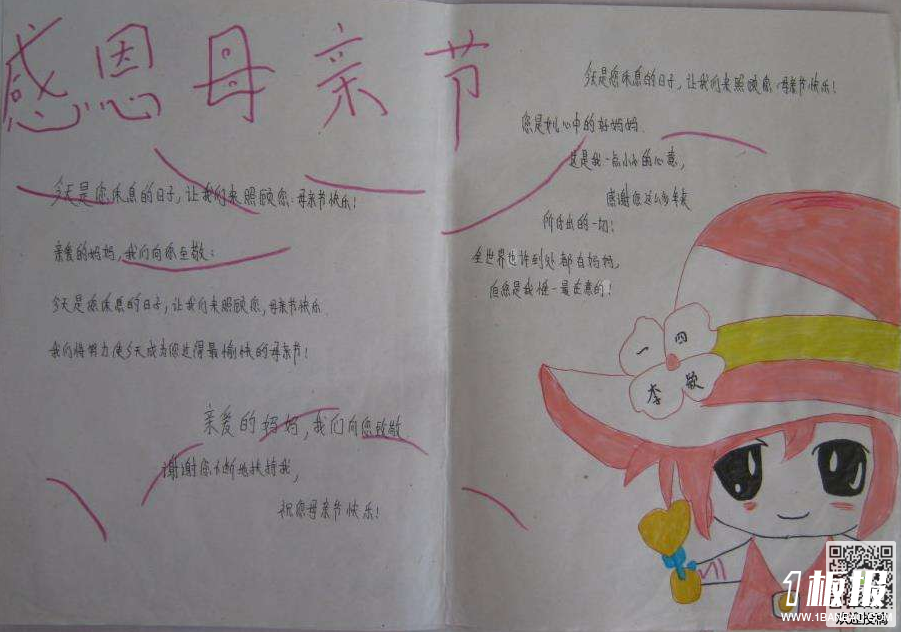 感恩母亲节
今天是您休息的日子，让我们来照顾您。母亲节快乐！
亲爱的妈妈，我们向你至敬：
今天是您休息的日子，让我们来照顾您，母亲节快乐.
我们将努力使今天成为您过得最愉快的母亲节！
亲爱的妈妈，我们向您致敬
谢谢您不断地扶持我，
祝您母亲节快乐！
今天是您休息的日子，让我们来照顾您，母亲节快乐！
您是我心中的好妈妈.
这是我一点小小的心意，
感谢您这么多年来
所付出的一切！
全世界也许到处都有妈妈，
但您是我唯一最在意的！
一 四
李 颖
1板报
WWW.1BANBAO.COM